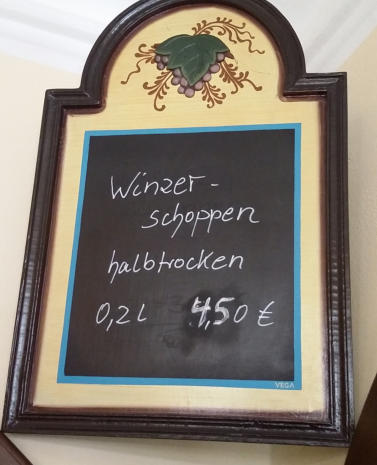 Winzer-
schoppen
halbtrocken
0,2l 4,50 €
VEGA